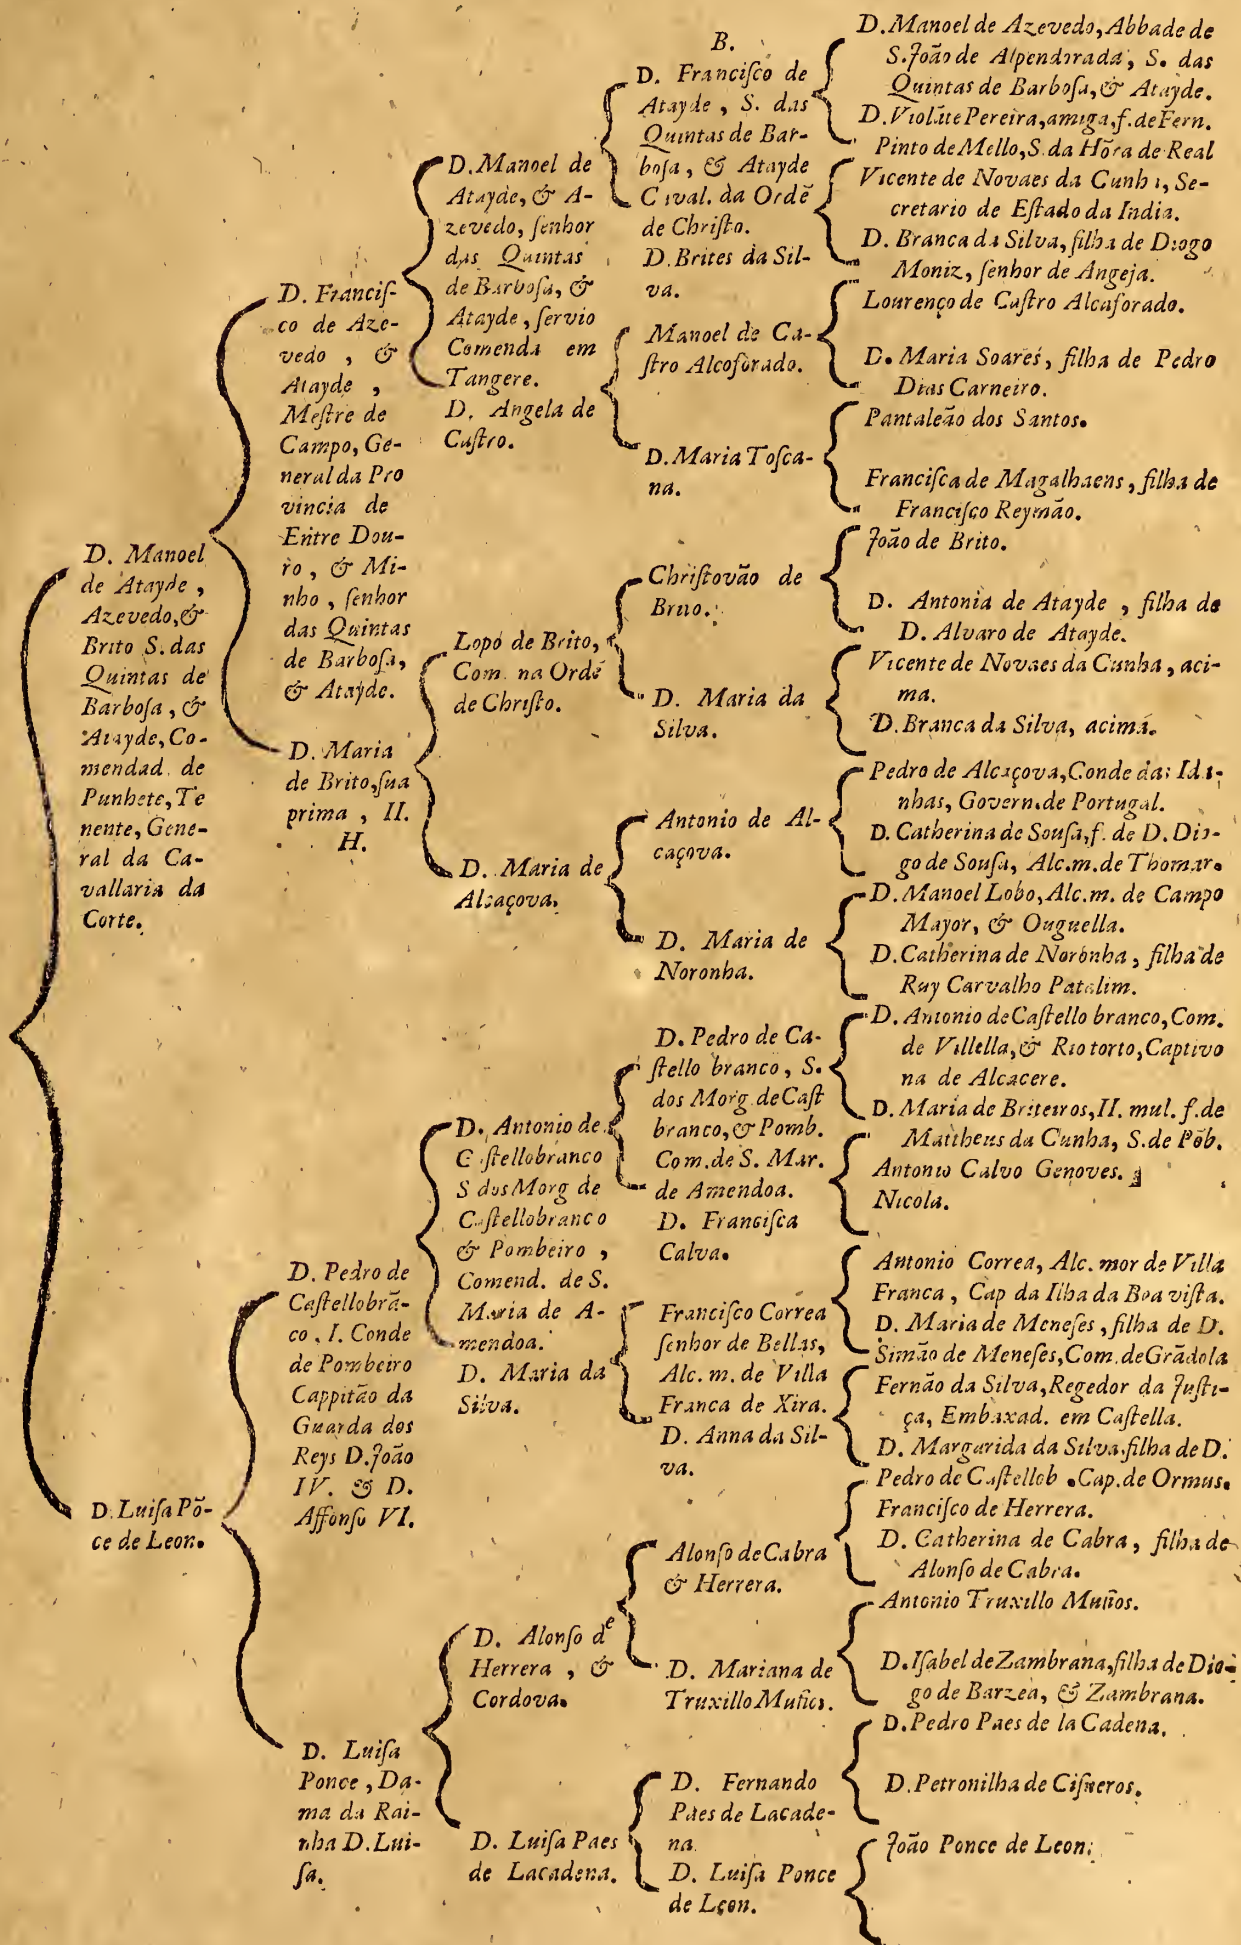 D. Manoel
de Atayde,
Azevedo, &
Brito S. das
Quintas de
Barbosa, &
Atayde, Co-
mendad. de
Punhete, Te
nente, Gene-
ral da Ca-
vallaria da
Corte.
D. Luiſa Põ-
ce de Leon.
D. Franciſ-
co de Aze-
vedo, &
Atayde,
Meſtre de
Campo, Ge-
neral da Pro
vincia de
Entre Dou-
ro, & Mi-
nho, ſenhor
das Quintas
de Barboſa,
& Atayde.
D. Maria
de Brito, ſua
prima, II.
H.
D. Pedro de
Caſtellobrã-
co, I. Conde
de Pombeiro
Cappitão da
Guarda dos
Reys D. João
IV. & D.
Affonſo VI.
D. Luiſa
Ponce, Da-
ma da Rai-
nha D. Lui-
ſa.
D. Manoel de
Atayde, & A-
zevedo, ſenhor
das Quintas
de Barboſa, &
Atayde, ſervio
Comenda em
Tangere.
D. Angela de
Caſtro.
Lopo de Brito,
Com. na Ordẽ
de Chriſto.
D. Maria de
Alcaçova.
D. Antonio de
Caſtellobranco
S dos Morg de
Caſtellobranco
& Pombeiro,
Comend. de S.
Maria de A-
mendoa.
D. Maria da
Silva.
D. Alonſo de
Herrera, &
Cordova.
D. Luiſa Paes
de Lacadena.
B.
D. Franciſco de
Atayde, S. das
Quintas de Bar-
boſa, & Atayde
Caval. da Ordẽ
de Chriſto.
D. Brites da Sil-
va.
Manoel de Ca-
ſtro Alcoforado.
D. Maria Toſca-
na.
Chriſtovão de
Brito.
D. Maria da
Silva.
Antonio de Al-
caçova.
D. Maria de
Noronha.
D. Pedro de Ca-
ſtello branco, S.
dos Morg. de Caſt
branco, & Pomb.
Com. de S. Mar.
de Amendoa.
D. Franciſca
Calva.
Franciſco Correa
ſenhor de Bellas,
Alc. m. de Villa
Franca de Xira.
D. Anna da Sil-
va.
Alonſo de Cabra
& Herrera.
D. Mariana de
Truxillo Muños.
D. Fernando
Paes de Lacade-
na.
D. Luiſa Ponce
de Leon.
D. Manoel de Azevedo, Abbade de
S. João de Alpendorada, S. das
Quintas de Barboſa, & Atayde.
D. Violãte Pereira, amiga, f. de Fern.
Pinto de Mello, S. da Hõra de Real
Vicente de Novaes da Cunha, Se-
cretario de Eſtado da India.
D. Branca da Silva, filha de Diogo
Moniz, ſenhor de Angeja.
Lourenço de Caſtro Alcaforado.
D. Maria Soares, filha de Pedro
Dias Carneiro.
Pantaleão dos Santos.
Franciſca de Magalhaens, filha de
Franciſco Reymão.
João de Brito.
D. Antonia de Atayde, filha de
D. Alvaro de Atayde.
Vicente de Novaes da Cunha, aci-
ma.
D. Branca da Silva, acima.
Pedro de Alcaçova, Conde das Ida-
nhas, Govern. de Portugal.
D. Catherina de Souſa, f. de D. Dio-
go de Souſa, Alc. m. de Thomar.
D. Manoel Lobo, Alc. m. de Campo
Mayor, & Ouguella.
D. Catherina de Noronha, filha de
Ruy Carvalho Patalim.
D. Antonio de Caſtello branco, Com.
de Villella, & Rio torto, Captivo
na de Alcacere.
D. Maria de Briteiros, II. mul. f. de
Mattheus da Cunha, S. de Põb.
Antonio Calvo Genoves.
Nicola.
Antonio Correa, Alc. mor de Villa
Franca, Cap da Ilha da Boa viſta.
D. Maria de Meneſes, filha de D.
Simão de Meneſes, Com. de Grãdola
Fernão da Silva, Regedor da Juſti-
ça, Embaxad. em Caſtella.
D. Margarida da Silva, filha de D.
Pedro de Caſtellob. Cap. de Ormus.
Franciſco de Herrera.
D. Catherina de Cabra, filha de
Alonſo de Cabra.
Antonio Truxillo Muños.
D. Iſabel de Zambrana, filha de Dio-
go de Barzea, & Zambrana.
D. Pedro Paes de la Cadena.
D. Petronilha de Ciſneros.
João Ponce de Leon.